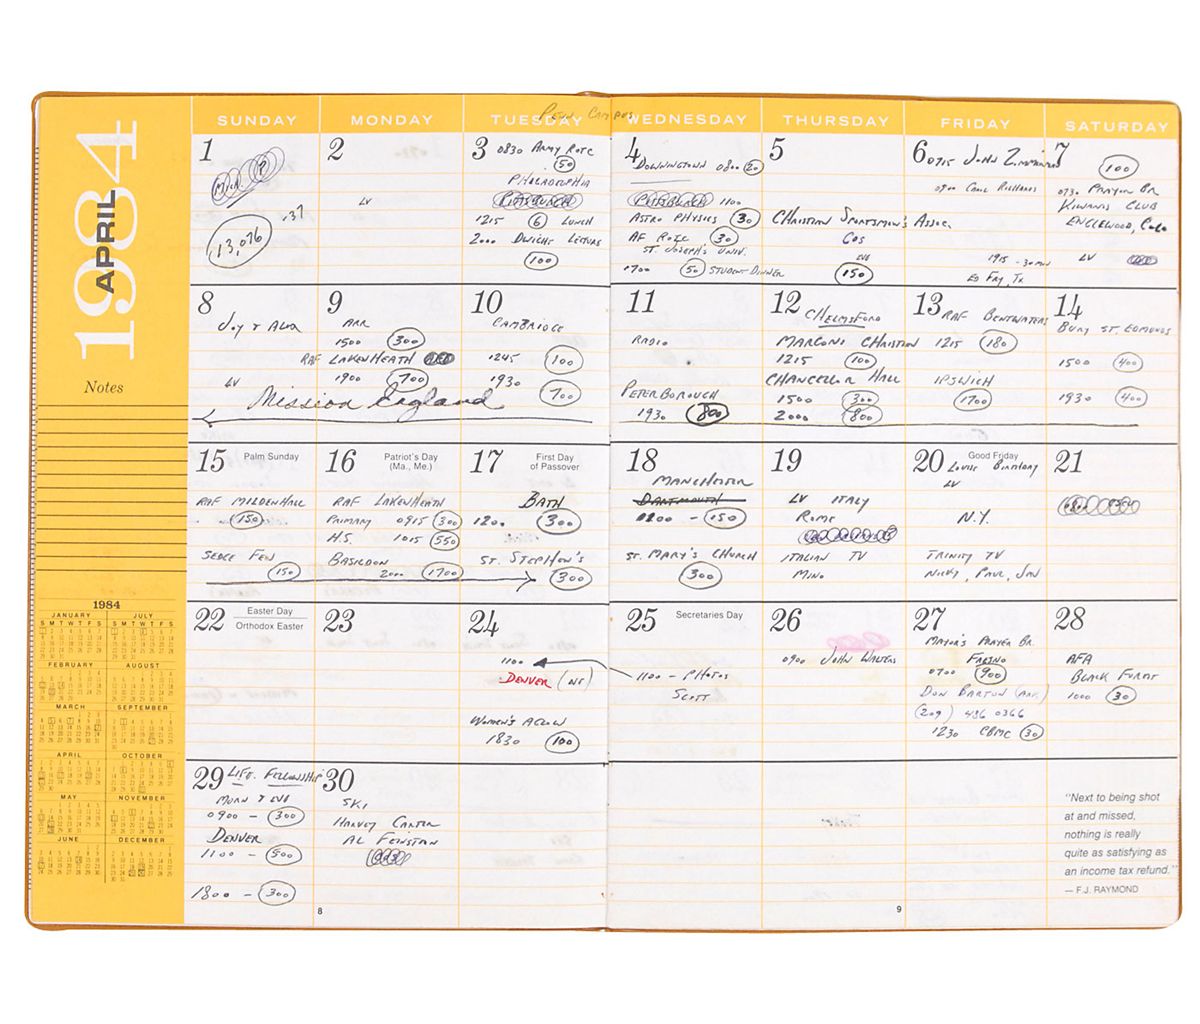 1984
APRIL
Notes
1984
JANUARY
JULY
S M T W T F S
S M T W T F S
FEBRUARY
AUGUST
MARCH
SEPTEMBER
APRIL
OCTOBER
MAY
NOVEMBER
JUNE
DECEMBER
PENN CAMPUS
SUNDAY
MONDAY
TUESDAY
WEDNESDAY
THURSDAY
FRIDAY
SATURDAY
1
.37
13,076
2
LV
3 0830 ARMY ROTC
50
PHILADELPHIA
PITTSBURGH
1215 6 LUNCH
2000 DWIGHT LECTURE
100
4
DOWNINGTOWN 0800 20
PITTSBURGH 1100
ASTRO PHYSICS 30
AF ROTC 30
ST. JOSEPH'S UNIV.
1700 50 STUDENT DINNER
5
CHRISTIAN SPORTSMEN'S ASSOC.
COS
EVE
150
6 0715 JOHN ZIMMERMAN
0900 CAROL RICHARDS
1915 - 30 MIN
ED FRY, TX
7
100
0730 PRAYER BR.
KIWANIS CLUB
ENGLEWOOD, COLO
LV
8
JOY & ALEX
LV
9
ARR
1500 300
RAF LAKENHEATH
1900 700
Mission England
10
CAMBRIDGE
1245 100
1930 700
11
RADIO
PETERBOROUGH
1930 800
12 CHELMSFORD
MARCONI CHRISTIAN
1215 100
CHANCELLOR HALL
1500 300
2000 800
13 RAF BENTWATERS
1215 180
IPSWICH
1700
14
BURY ST. EDMUNDS
1500 400
1930 400
15 Palm Sunday
RAF MILDENHALL
150
SEDGE FEN
150
16 Patriot's Day
(Ma., Me.)
RAF LAKENHEATH
PRIMARY 0915 300
H.S. 1015 550
BASILDON
2000 1700
17 First Day
of Passover
BATH
1200 300
ST. STEPHEN'S
300
18
MANCHESTER
DARTMOUTH
1200 - 150
ST. MARY'S CHURCH
300
19
LV ITALY
ROME
ITALIAN TV
MINO
20 Good Friday
LOUISE BIRTHDAY
LV
N.Y.
TRINITY TV
NICKY, PAUL, JAN
21
22 Easter Day
Orthodox Easter
23
24
1100
DENVER (INT)
WOMEN'S AGLOW
1830 100
25 Secretaries Day
1100 - PHOTOS
SCOTT
26
0900 JOHN WALTERS
27
MAYOR'S PRAYER BR.
FRESNO
0700 900
DON BARTON (ARR.)
(209) 486 0366
1230 CBMC 30
28
AFA
BLACK FOREST
1000 30
29 LIFE FELLOWSHIP
MORN & EVE
0900 - 300
DENVER
1100 - 500
1800 - 300
30
SKI
HARVEY CARTER
AL FEINSTAN
"Next to being shot
at and missed,
nothing is really
quite as satisfying as
an income tax refund."
— F.J. RAYMOND
8
9